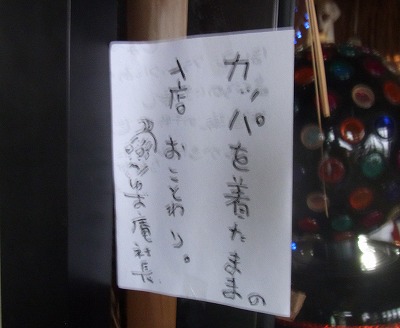 カッパを着たままの
入店おことわり。
庵社長